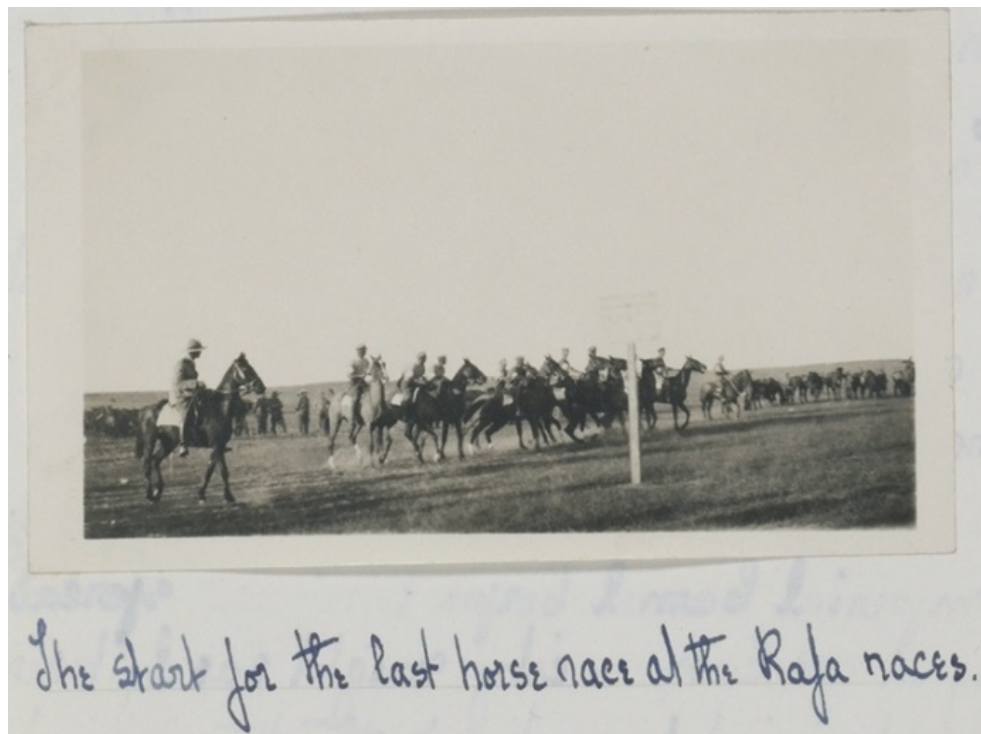 The start for the last horse race at the Rafa races.